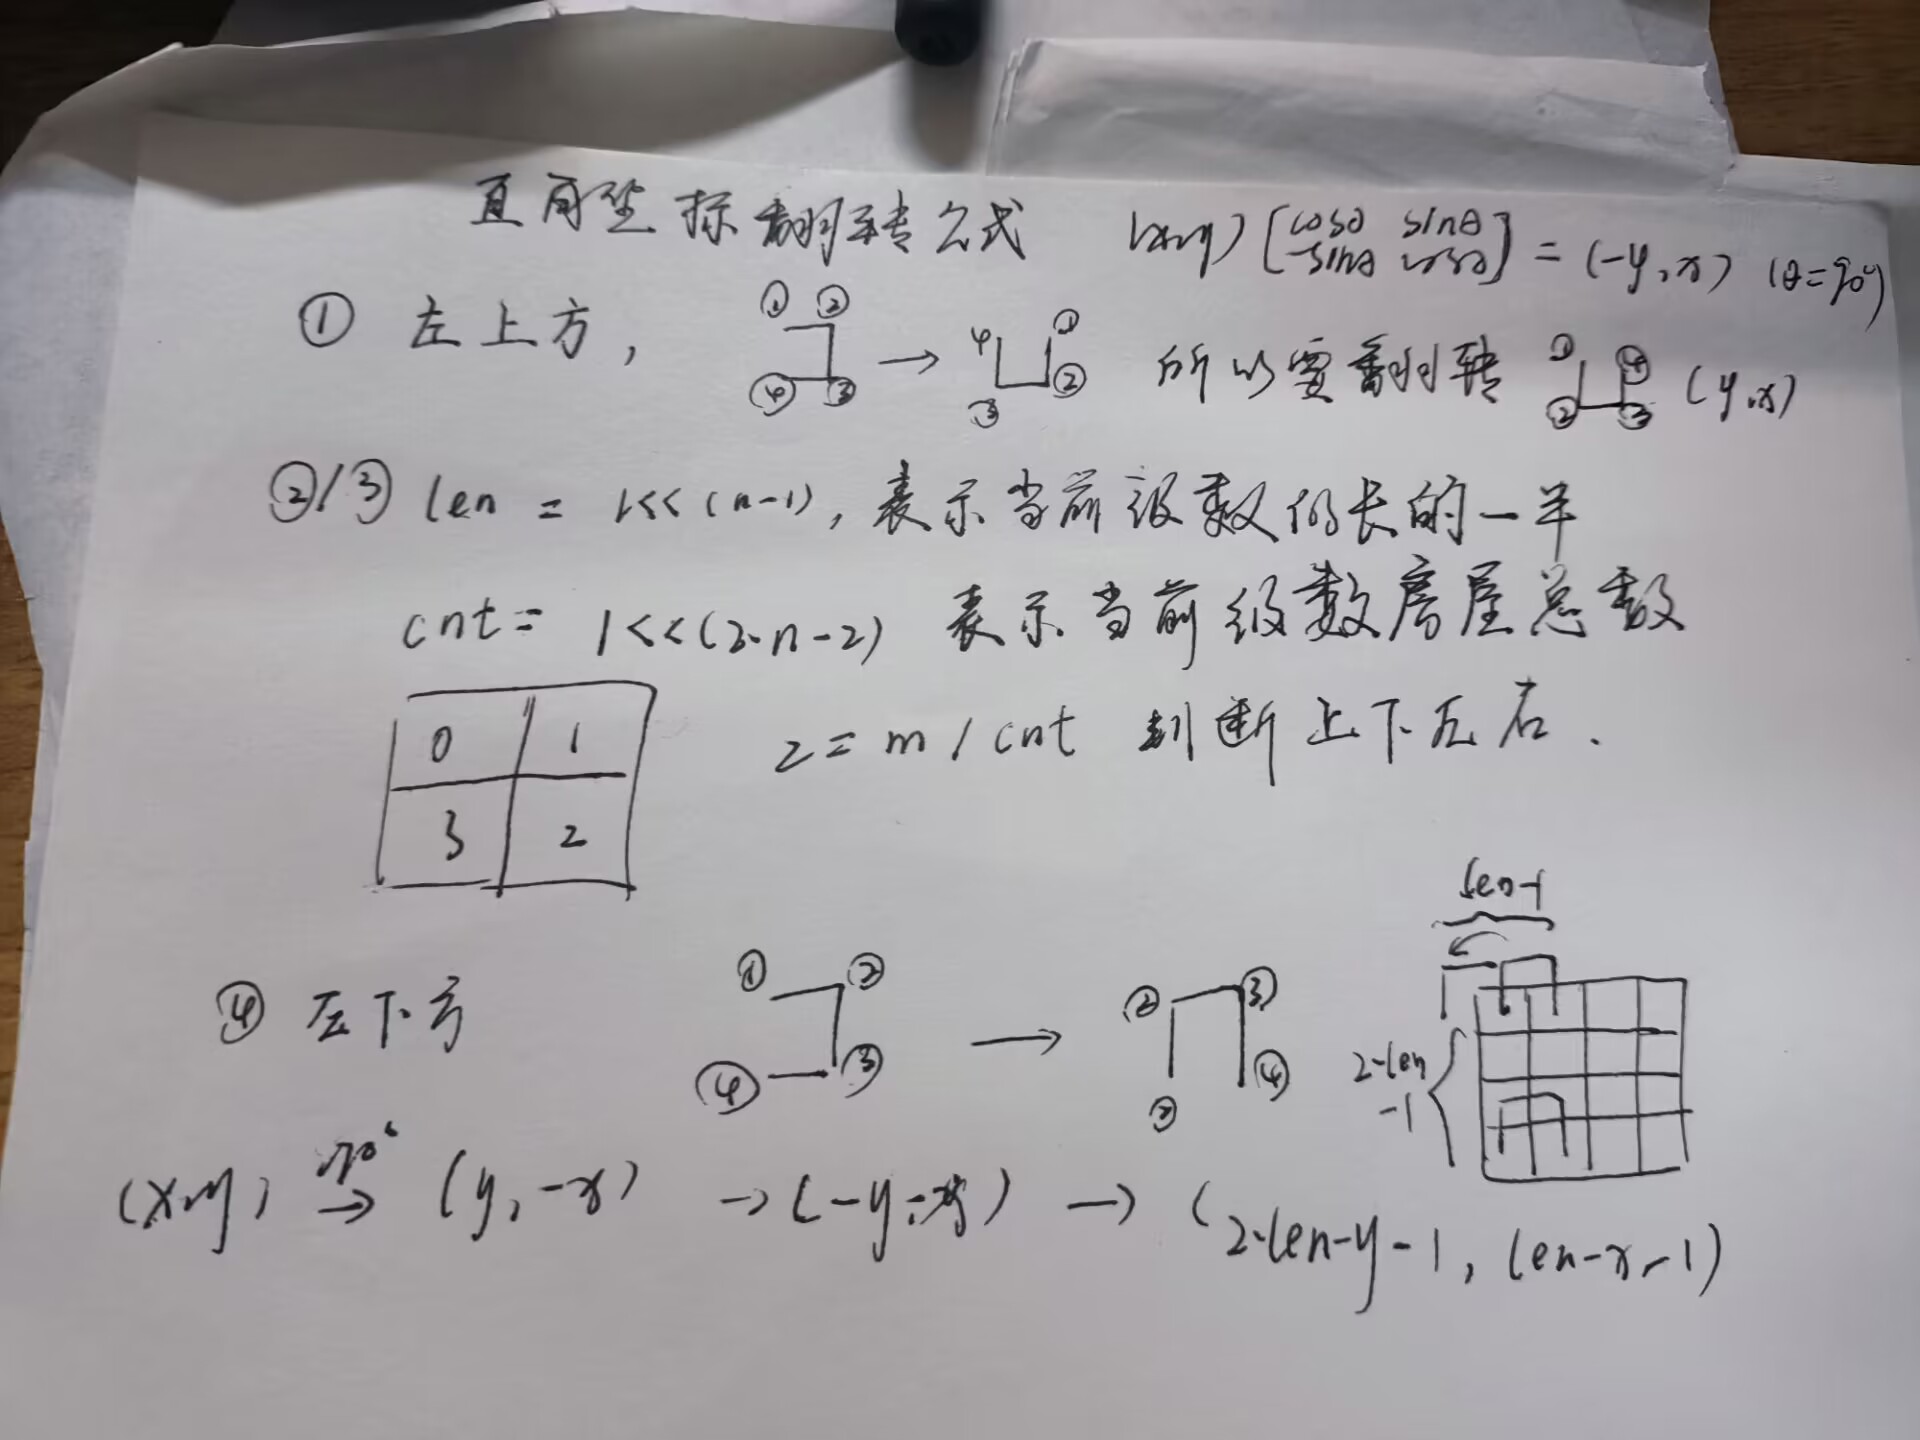 直角坐标翻转公式 (x,y) [cosθ sinθ -sinθ cosθ] = (-y,x) (θ=90°)
① 左上方, ① ② ③ ④ → ④ ① ② ③ 所以要翻转 ① ④ ② ③ (y,x)
②/③ len = 1<<(n-1), 表示当前级数边长的一半
cnt = 1<<(2·n-2) 表示当前级数房屋总数
0 1
3 2
z = m / cnt 判断上下左右.
len-1
④ 左下方 ① ② ③ ④ → ② ③ ④
2·len
-1
(x,y) 90° → (y,-x) → (-y, ) → (2·len-y-1, len-x-1)